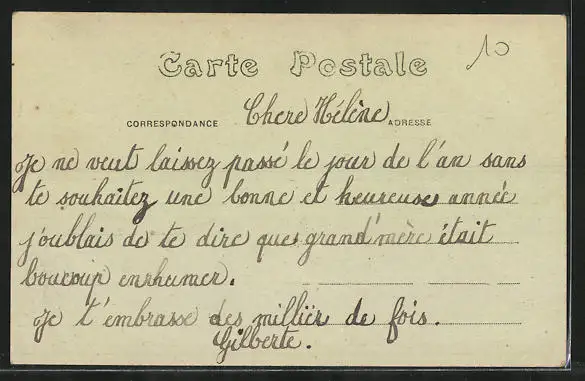 10
Carte Postale
CORRESPONDANCE Chere Hélène ADRESSE
Je ne veut laissez passé le jour de l'an sans
te souhaitez une bonne et heureuse année
j'oublais de te dire que grand'mère était
boucoup enrhumer.
Je t'embrasse des milliër de fois.
Gilberte.